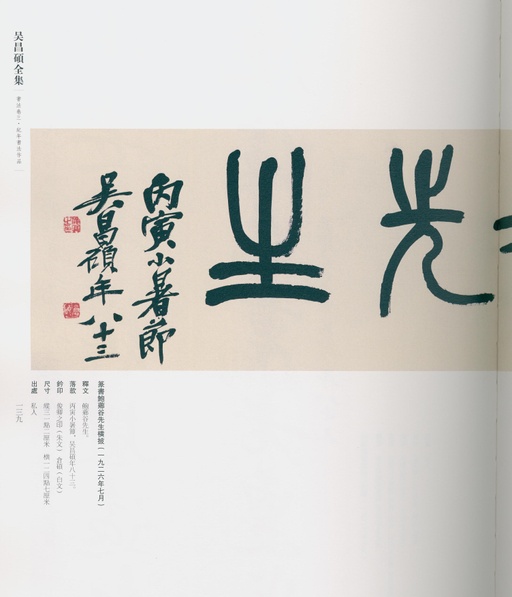 吴昌碩全集
書法卷三・紀年書法作品
先生
丙寅小暑節
吴昌碩年八十三
篆書鮑谷先生橫披（一九二六年七月）
釋文 鮑谷先生。
落款 丙寅小暑節，吴昌碩年八十三。
鈐印 俊卿之印（朱文） 倉碩（白文）
尺寸 縱三一點二厘米 橫一二四點七厘米
出處 私人
一三九